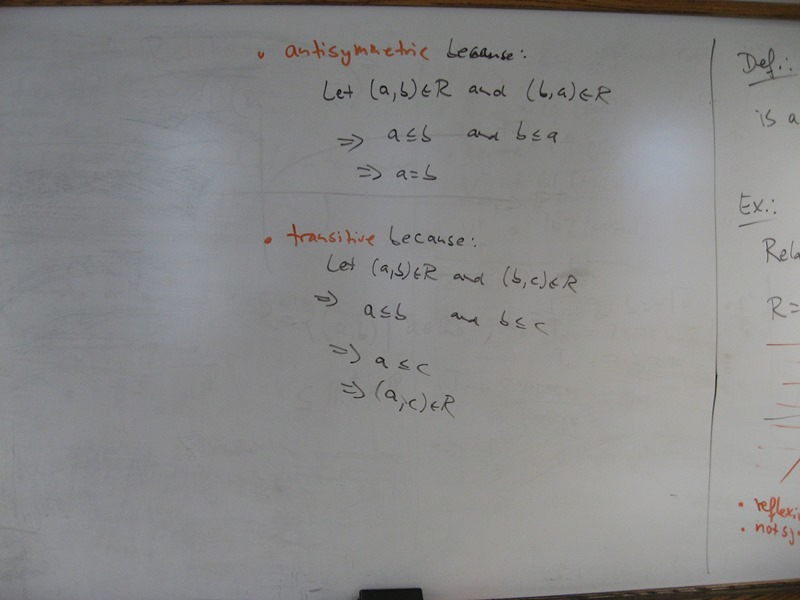 • antisymmetric because:
Let (a,b)∈R and (b,a)∈R
⇒ a≤b and b≤a
⇒ a=b
• transitive because:
Let (a,b)∈R and (b,c)∈R
⇒ a≤b and b≤c
⇒ a≤c
⇒ (a,c)∈R
Def.:
is a
Ex.:
Rela
R=
• reflexi
• not sy